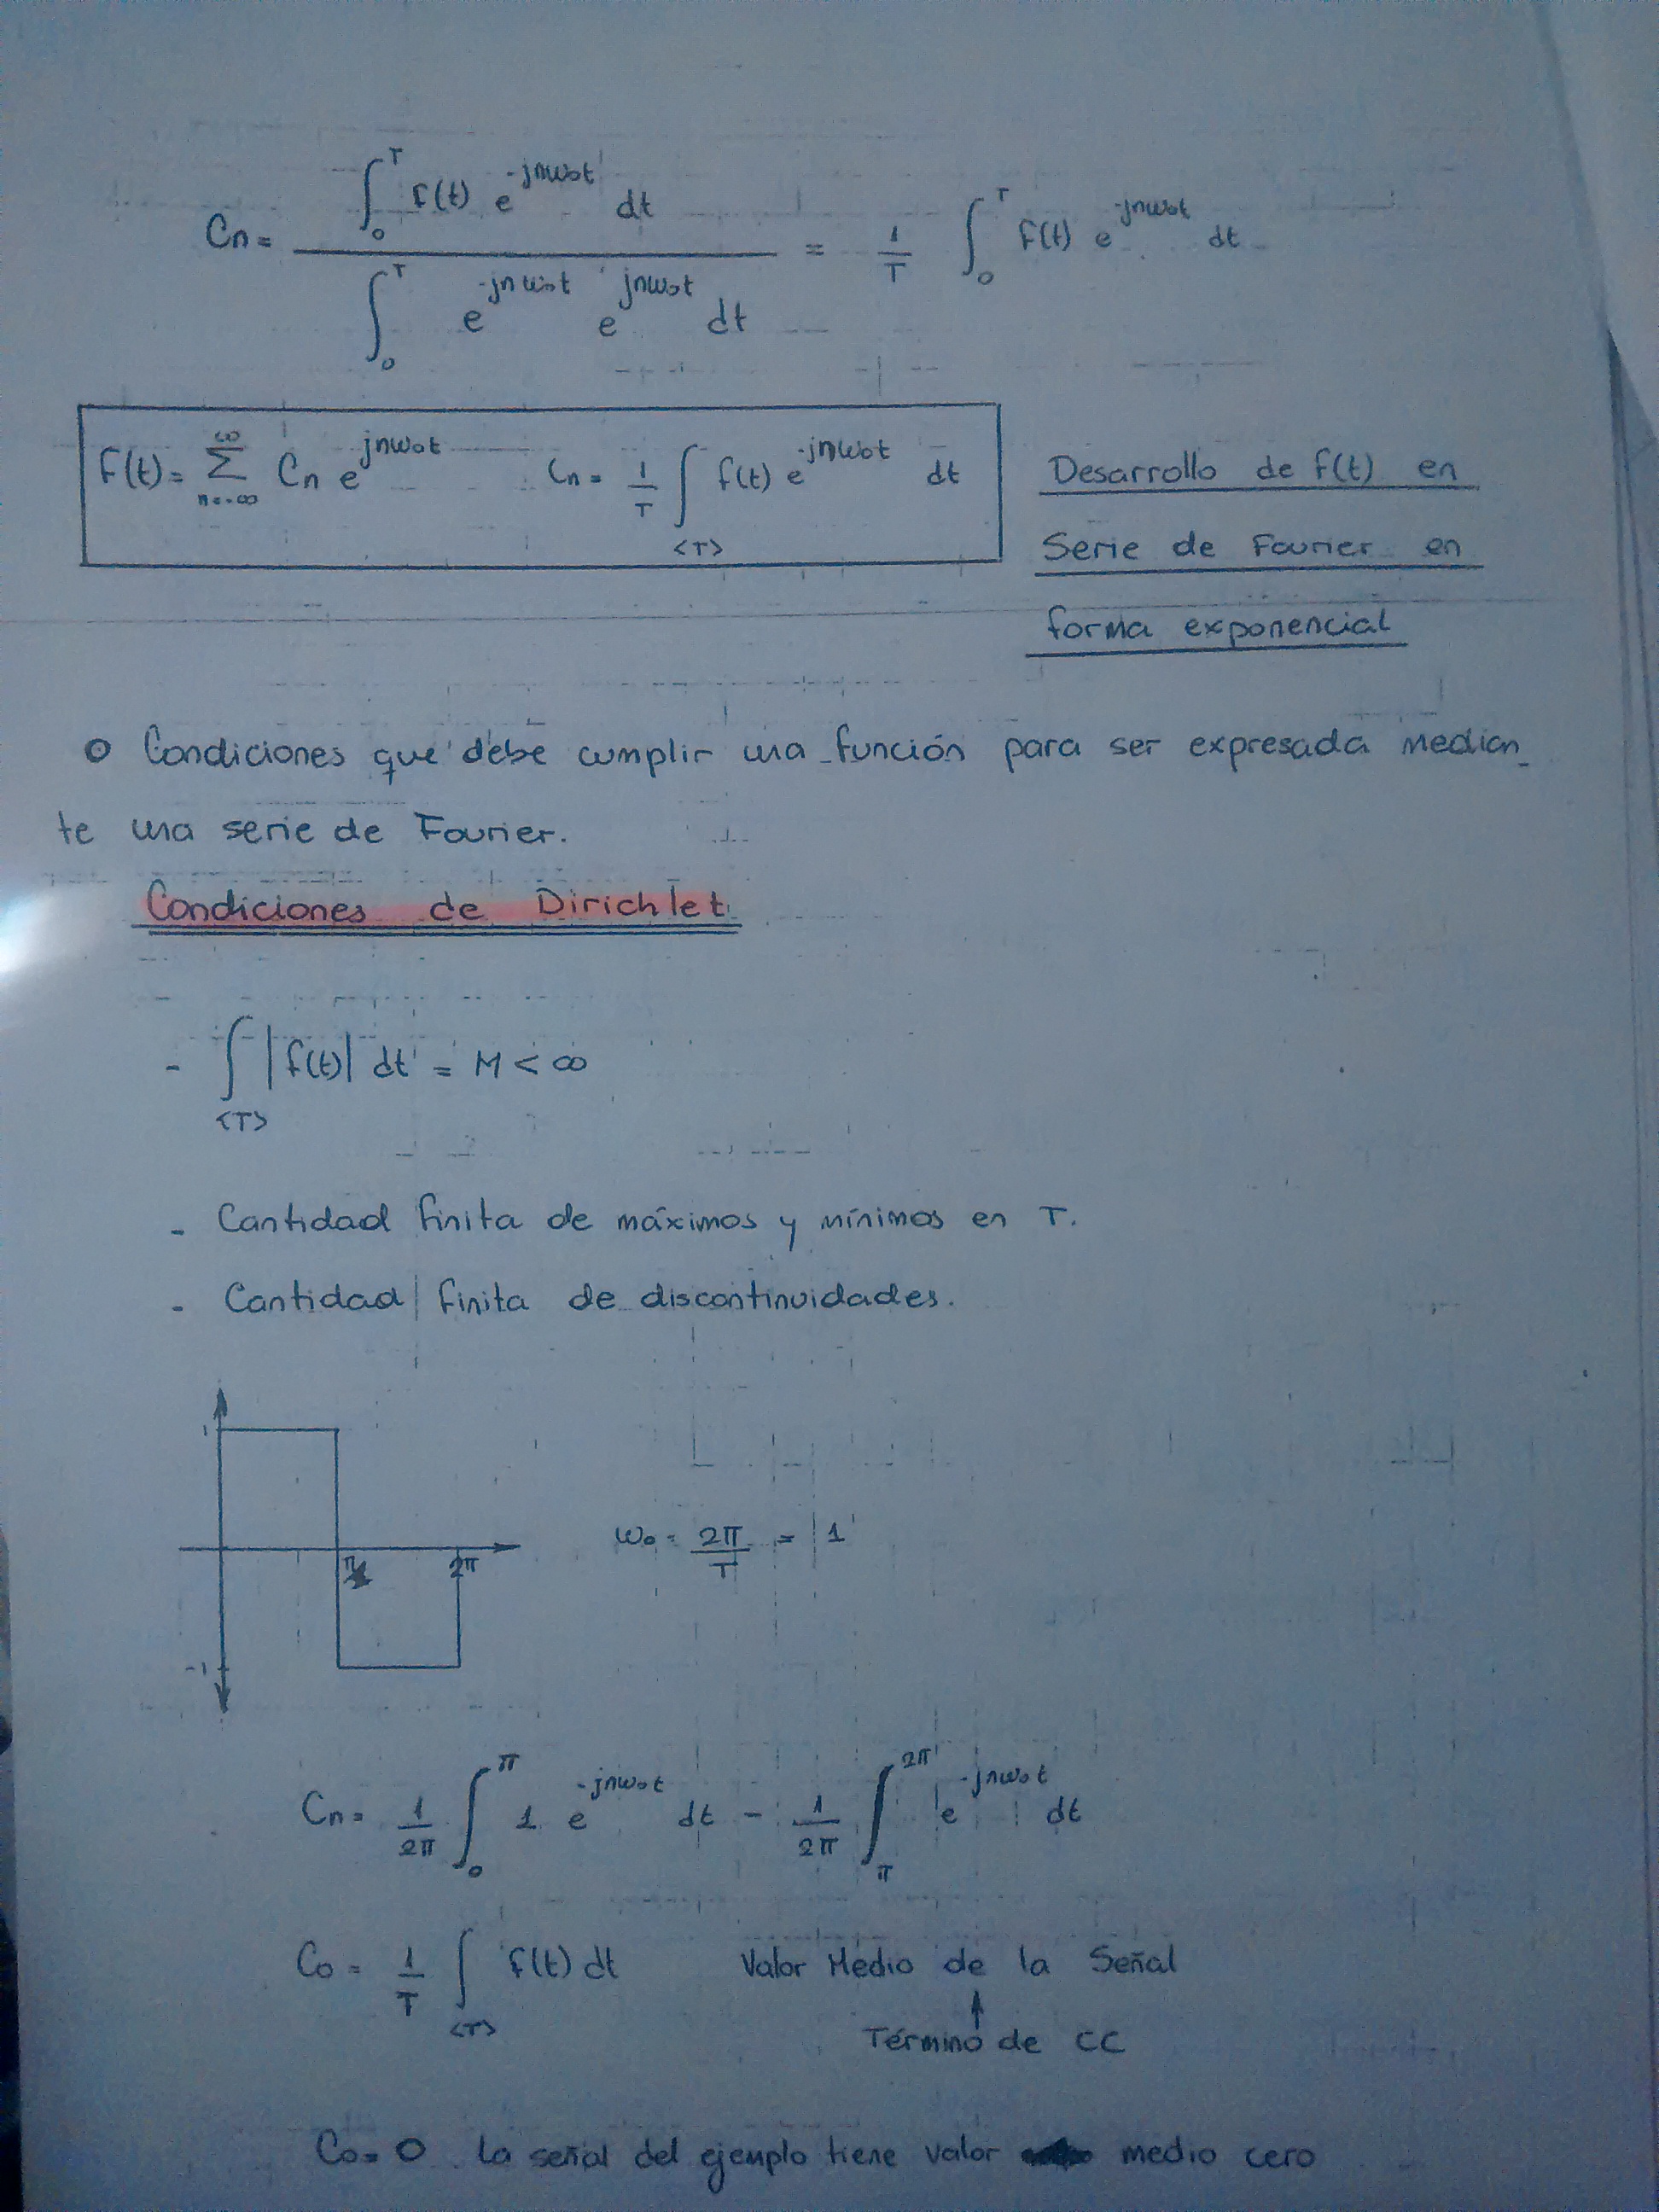 Cn = ∫₀ᵀ f(t) e^(-jnω₀t) dt / ∫₀ᵀ e^(-jnω₀t) e^(jnω₀t) dt = 1/T ∫₀ᵀ f(t) e^(-jnω₀t) dt
f(t) = Σ_(n=-∞)^∞ Cn e^(jnω₀t)    Cn = 1/T ∫_<T> f(t) e^(-jnω₀t) dt
Desarrollo de f(t) en
Serie de Fourier en
forma exponencial
o Condiciones que debe cumplir una función para ser expresada median_
te una serie de Fourier.
Condiciones de Dirichlet
- ∫_<T> |f(t)| dt = M < ∞
- Cantidad finita de máximos y mínimos en T.
- Cantidad finita de discontinuidades.
1
π
2π
-1
ω₀ = 2π/T = 1
Cn = 1/2π ∫₀^π 1 e^(-jnω₀t) dt - 1/2π ∫_π^2π e^(-jnω₀t) dt
C₀ = 1/T ∫_<T> f(t) dt    Valor Medio de la Señal
↑
Término de CC
C₀ = 0. La señal del ejemplo tiene valor medio cero